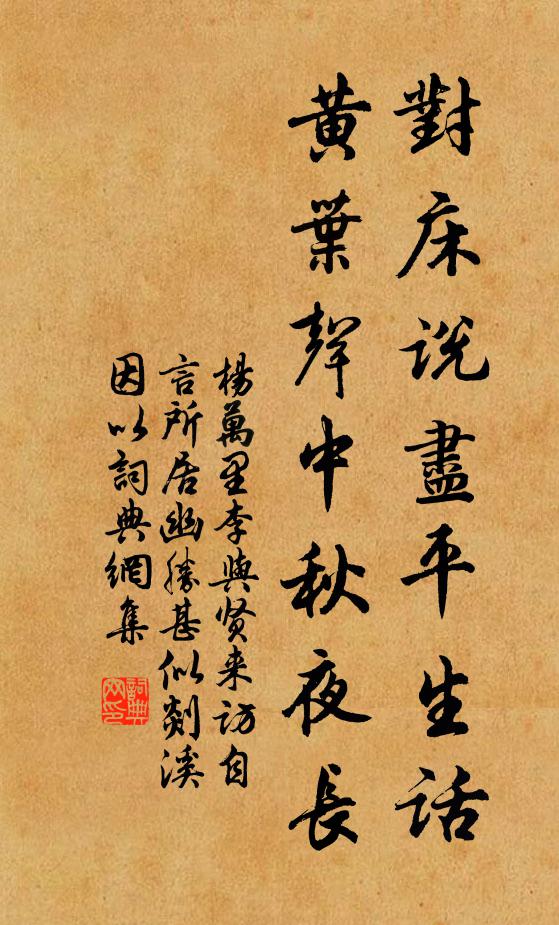 對床説盡平生話
黃葉聲中秋夜長
楊萬里李與贤来訪自
言所居幽勝甚似剡溪
因以詞典網集
詞典
网印